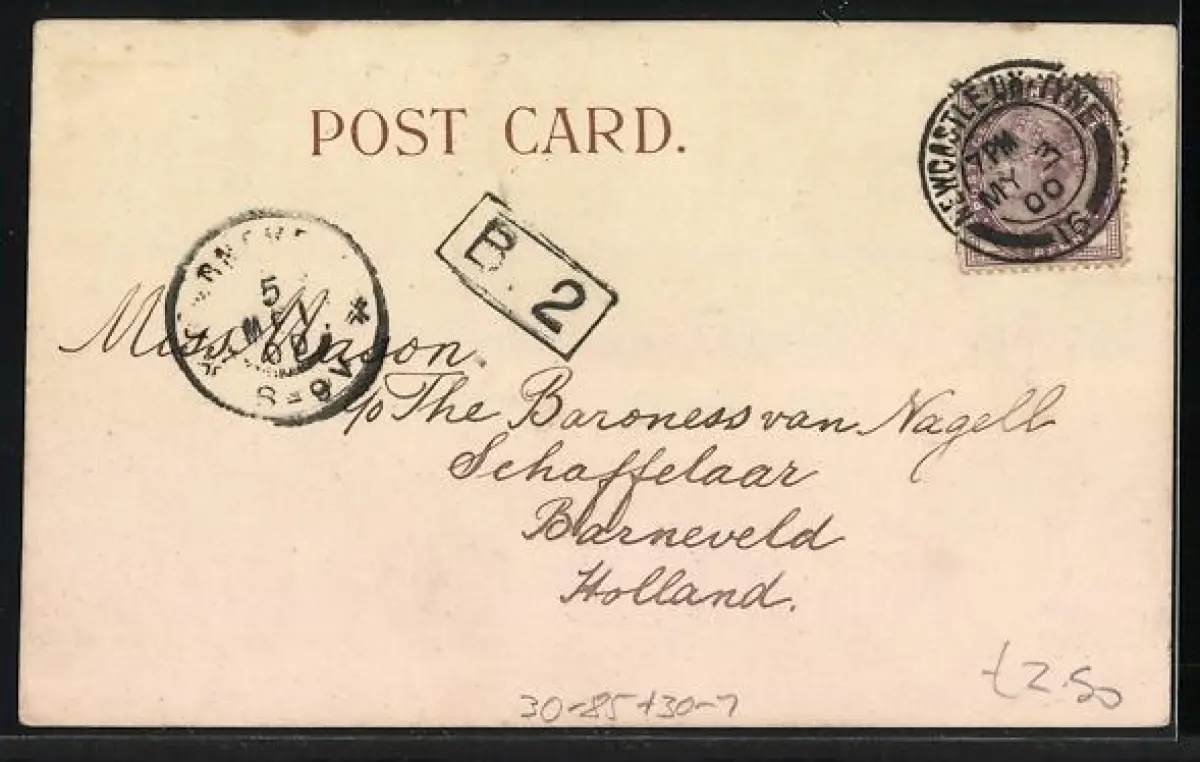 POST CARD.
NEWCASTLE ON TYNE
7 PM
MY
00
16
B. 2
5
Miss
c/o The Baroness van Nagell
Schaffelaar
Barneveld
Holland.
£2.50
30-85+30-7